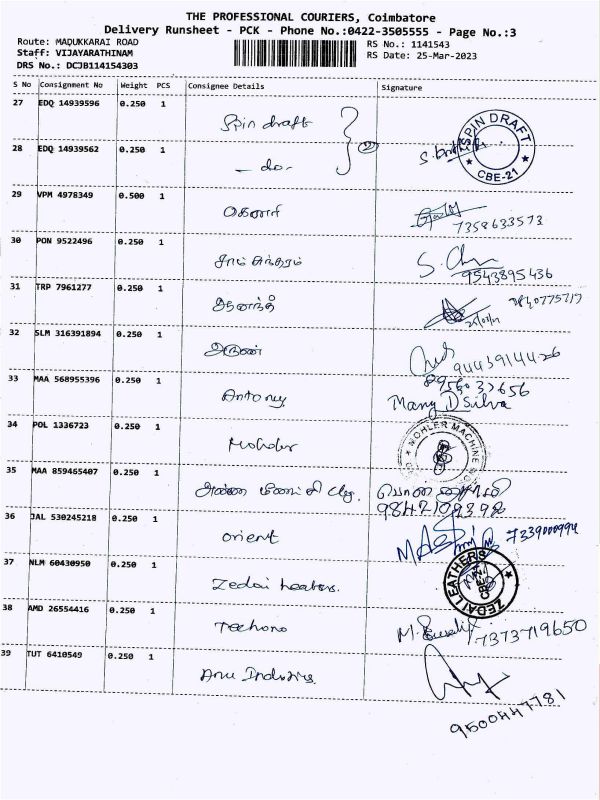 THE PROFESSIONAL COURIERS, Coimbatore
Delivery Runsheet - PCK - Phone No.:0422-3505555 - Page No.:3
Route: MADUKKARAI ROAD
RS No.: 1141543
Staff: VIJAYARATHINAM
RS Date: 25-Mar-2023
DRS No.: DCJB114154303
S No Consignment No Weight PCS Consignee Details Signature
27 EDQ 14939596 0.250 1 Spin draft
28 EDQ 14939562 0.250 1 - do - 2
SPIN DRAFT
CBE-21
29 VPM 4978349 0.500 1
7358633573
30 PON 9522496 0.250 1 S.
9543895436
31 TRP 7961277 0.250 1 ஆனந்தி
32 SLM 316391894 0.250 1 அருண் 9443914426
33 MAA 568955396 0.250 1 Antony
Mary D Silva
34 POL 1336723 0.250 1 Mohler
MOHLER MACHINE
35 MAA 859465407 0.250 1
9842108398
36 JAL 530245218 0.250 1 Orient 7339000994
37 NLM 60430950 0.250 1 Zedai
ZEDAI LEATHERS
38 AMD 26554416 0.250 1 Techono M. 7373719650
39 TUT 6410549 0.250 1 Anu
9500447781